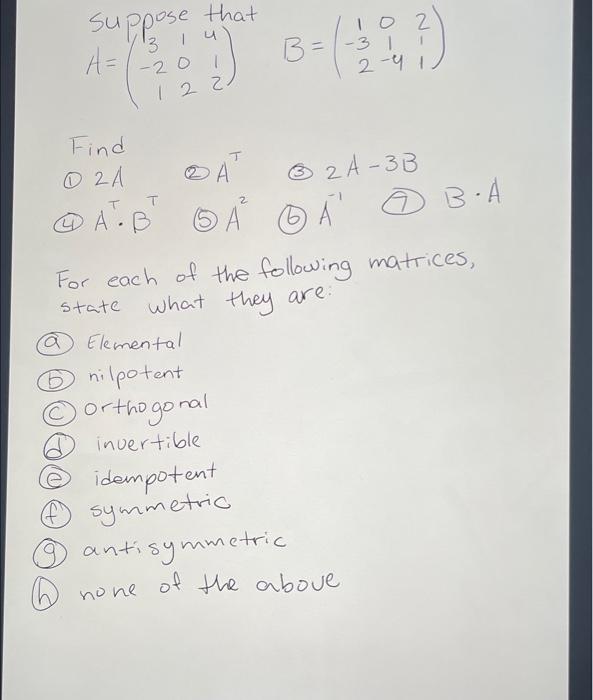 Suppose that
A = ( 3 1 4
-2 0 1
1 2 2 )
B = ( 1 0 2
-3 1 1
2 -4 1 )
Find
① 2A ② Aᵀ ③ 2A - 3B
④ Aᵀ · Bᵀ ⑤ A² ⑥ A⁻¹ ⑦ B · A
For each of the following matrices,
state what they are:
ⓐ Elemental
ⓑ nilpotent
ⓒ orthogonal
ⓓ invertible
ⓔ idempotent
ⓕ symmetric
ⓖ antisymmetric
ⓗ none of the above